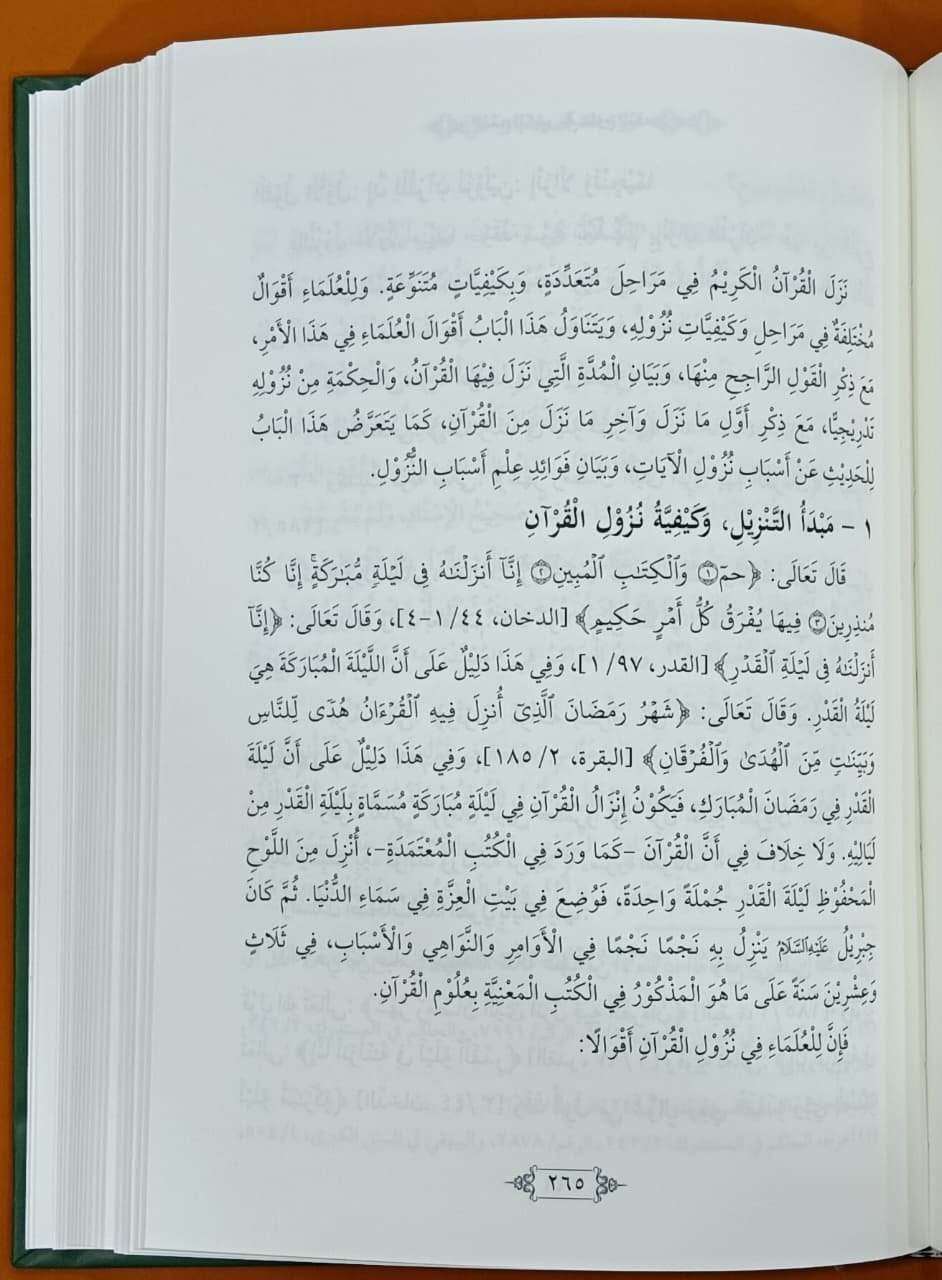 نَزَلَ الْقُرْآنُ الْكَرِيْمُ فِي مَرَاحِلَ مُتَعَدِّدَةٍ، وَبِكَيْفِيَّاتٍ مُتَنَوِّعَةٍ. وَلِلْعُلَمَاءِ أَقْوَالٌ
مُخْتَلِفَةٌ فِي مَرَاحِلِ وَكَيْفِيَّاتِ نُزُوْلِهِ، وَيَتَنَاوَلُ هَذَا الْبَابُ أَقْوَالَ الْعُلَمَاءِ فِي هَذَا الْأَمْرِ،
مَعَ ذِكْرِ الْقَوْلِ الرَّاجِحِ مِنْهَا، وَبَيَانِ الْمُدَّةِ الَّتِي نَزَلَ فِيْهَا الْقُرْآنُ، وَالْحِكْمَةِ مِنْ نُزُوْلِهِ
تَدْرِيْجِيًّا، مَعَ ذِكْرِ أَوَّلِ مَا نَزَلَ وَآخِرِ مَا نَزَلَ مِنَ الْقُرْآنِ، كَمَا يَتَعَرَّضُ هَذَا الْبَابُ
لِلْحَدِيْثِ عَنْ أَسْبَابِ نُزُوْلِ الْآيَاتِ، وَبَيَانِ فَوَائِدِ عِلْمِ أَسْبَابِ النُّزُوْلِ.
١ - مَبْدَأُ التَّنْزِيْلِ، وَكَيْفِيَّةُ نُزُوْلِ الْقُرْآنِ
قَالَ تَعَالَى: ﴿حمٓ ۝١ وَٱلْكِتَـٰبِ ٱلْمُبِينِ ۝٢ إِنَّآ أَنزَلْنَـٰهُ فِى لَيْلَةٍ مُّبَـٰرَكَةٍ ۚ إِنَّا كُنَّا
مُنذِرِينَ ۝٣ فِيهَا يُفْرَقُ كُلُّ أَمْرٍ حَكِيمٍ﴾ [الدخان، ٤٤/ ١-٤]، وَقَالَ تَعَالَى: ﴿إِنَّآ
أَنزَلْنَـٰهُ فِى لَيْلَةِ ٱلْقَدْرِ﴾ [القدر، ٩٧/ ١]، وَفِي هَذَا دَلِيْلٌ عَلَى أَنَّ اللَّيْلَةَ الْمُبَارَكَةَ هِيَ
لَيْلَةُ الْقَدْرِ. وَقَالَ تَعَالَى: ﴿شَهْرُ رَمَضَانَ ٱلَّذِىٓ أُنزِلَ فِيهِ ٱلْقُرْءَانُ هُدًى لِّلنَّاسِ
وَبَيِّنَـٰتٍ مِّنَ ٱلْهُدَىٰ وَٱلْفُرْقَانِ﴾ [البقرة، ٢/ ١٨٥]، وَفِي هَذَا دَلِيْلٌ عَلَى أَنَّ لَيْلَةَ
الْقَدْرِ فِي رَمَضَانَ الْمُبَارَكِ، فَيَكُوْنُ إِنْزَالُ الْقُرْآنِ فِي لَيْلَةٍ مُبَارَكَةٍ مُسَمَّاةٍ بِلَيْلَةِ الْقَدْرِ مِنْ
لَيَالِيْهِ. وَلَا خِلَافَ فِي أَنَّ الْقُرْآنَ -كَمَا وَرَدَ فِي الْكُتُبِ الْمُعْتَمَدَةِ-، أُنْزِلَ مِنَ اللَّوْحِ
الْمَحْفُوْظِ لَيْلَةَ الْقَدْرِ جُمْلَةً وَاحِدَةً، فَوُضِعَ فِي بَيْتِ الْعِزَّةِ فِي سَمَاءِ الدُّنْيَا. ثُمَّ كَانَ
جِبْرِيْلُ عَلَيْهِ السَّلَامُ يَنْزِلُ بِهِ نَجْمًا نَجْمًا فِي الْأَوَامِرِ وَالنَّوَاهِي وَالْأَسْبَابِ، فِي ثَلَاثٍ
وَعِشْرِيْنَ سَنَةً عَلَى مَا هُوَ الْمَذْكُوْرُ فِي الْكُتُبِ الْمَعْنِيَّةِ بِعُلُوْمِ الْقُرْآنِ.
فَإِنَّ لِلْعُلَمَاءِ فِي نُزُوْلِ الْقُرْآنِ أَقْوَالًا:
٢٦٥